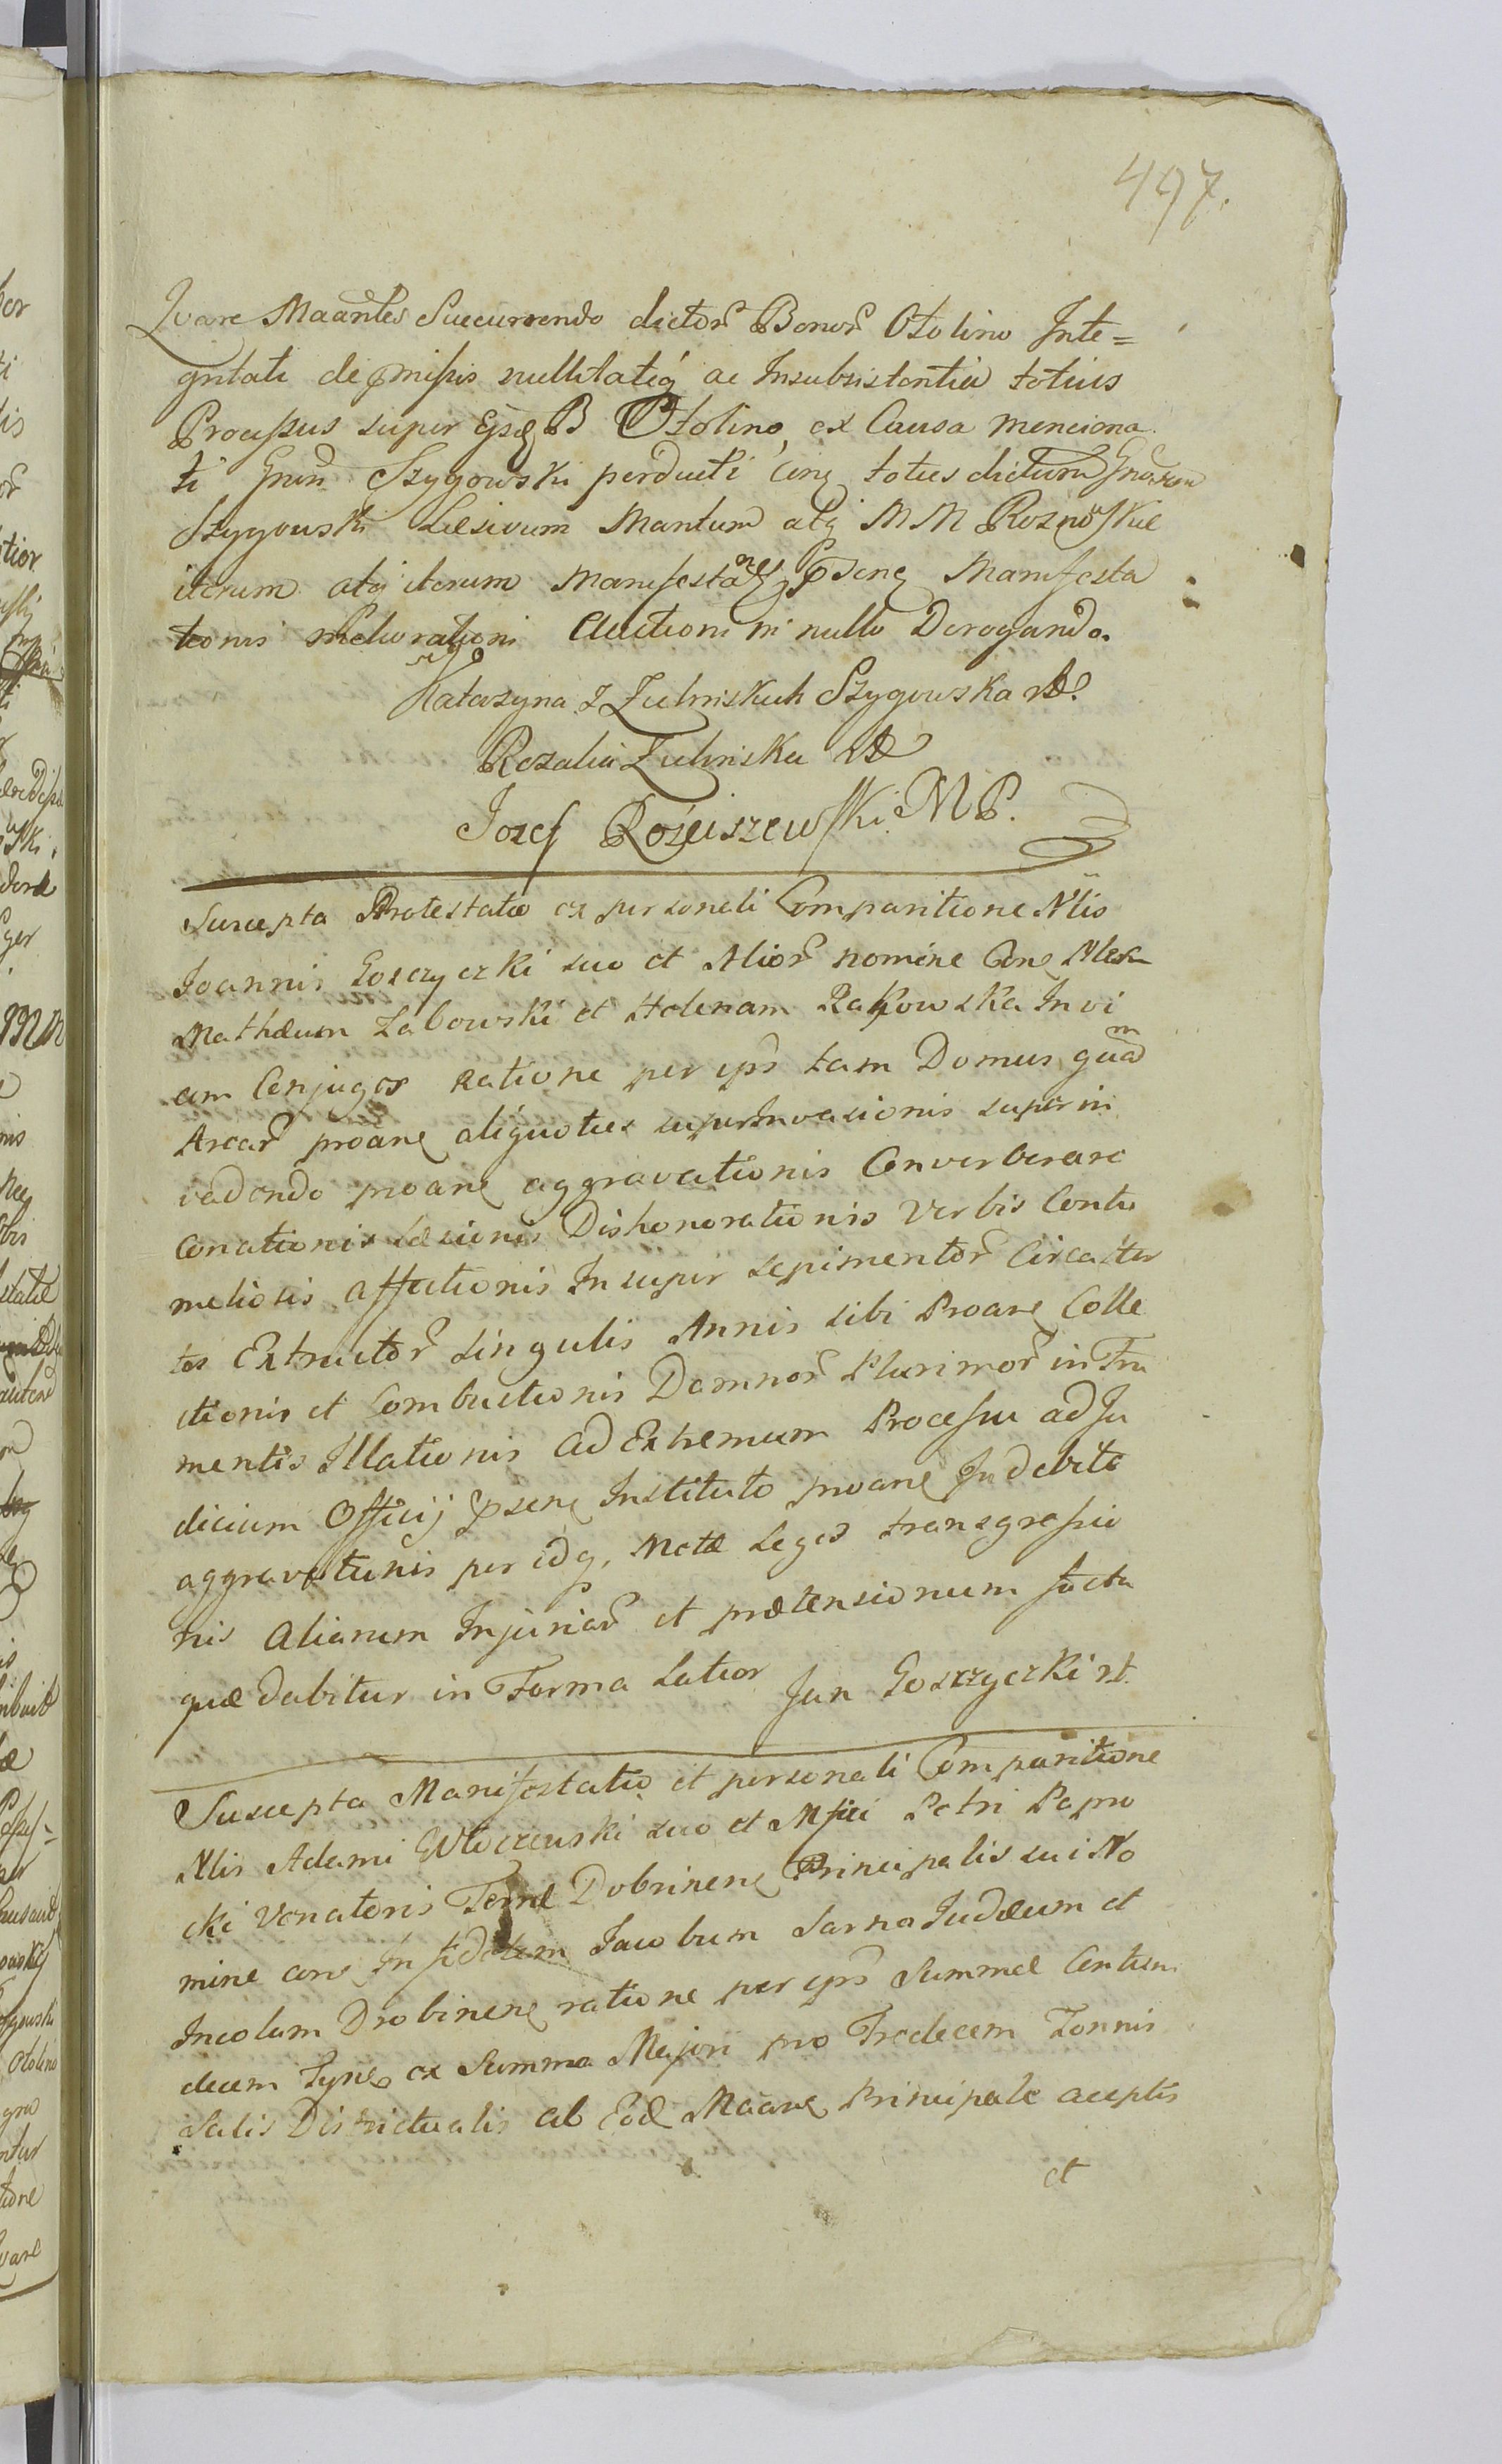 497.
Qvare Maantes Succurrendo dictor Bonor Otolino Inte=
gritati de pmissis nullitateq ac Insubsistentia totius
Processus super Ejsdq B Otolino, ex Causa menciona
ti Grnsi Szygowski perducti Cirq toties dictum Gnosum
Szygowski Læsivum Mantum atq MM Roznowskie
iterum atq iterum Manifestanes, Psenq Manifesta
tionis Meliorationi Auctioni in nullo Derogando.
Katarzyna z Zulinskich Szygowska
Rozalia Zulinska
Jozef Rościszewski. MP.
Suscepta Protestatio ex personali Comparitione Nlis
Joannis Goszczyczki suo et Alior nomine Cone Nles
Mathæum Zabowski et Helenam Rakowska Invi
cem Conjuges ratione per eps tam Domus quam
Arear proane aliquoties superinvasionis superin
vadendo proane aggravationis Converberare
conationis læsionis Dishonorationis Verbis Contu
meliosis affectionis Insuper sepimentor Circa iter
tes Extructor singulis Annis sibi Proane Colle
ctionis et Combustionis Damnor Plurimor in Fru
mentis Illationis ad Extremum Processu ad Ju
dicium Officij psenq Instituto proane Indebite
aggravationis per idq, Notæ Leges transgressio
nis Aliarum Injuriar et prætensionum facta
quæ dabitur in Forma Latior Jan Goszczyczki
Suscepta Manifestatio et personali Comparitione
Nlis Adami Wloczewski suo et Mfici Petri Papro
cki Venatoris Terræ Dobrinenq Principalis sui No
mine cone Infidelem Jacobum Sarna Judæum et
Incolam Drobinenq ratione per eps Summæ Centum
decem Tynf ex Summa Majori pro Tredecem Tonnis
Salis Districtualis ab Eod Maane Principale aceptis
et